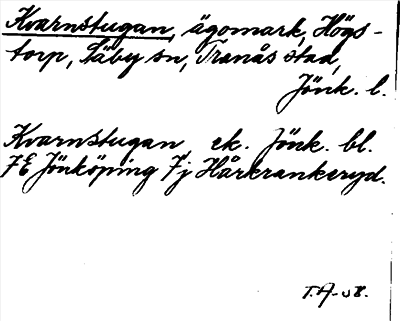 Kvarnstugan, ägomark, Högs-
torp, Säby sn, Tranås stad,
Jönk. l.
Kvarnstugan ek. Jönk. bl.
7E Jönköping 7j Hårkrankeryd.
T.A-58.